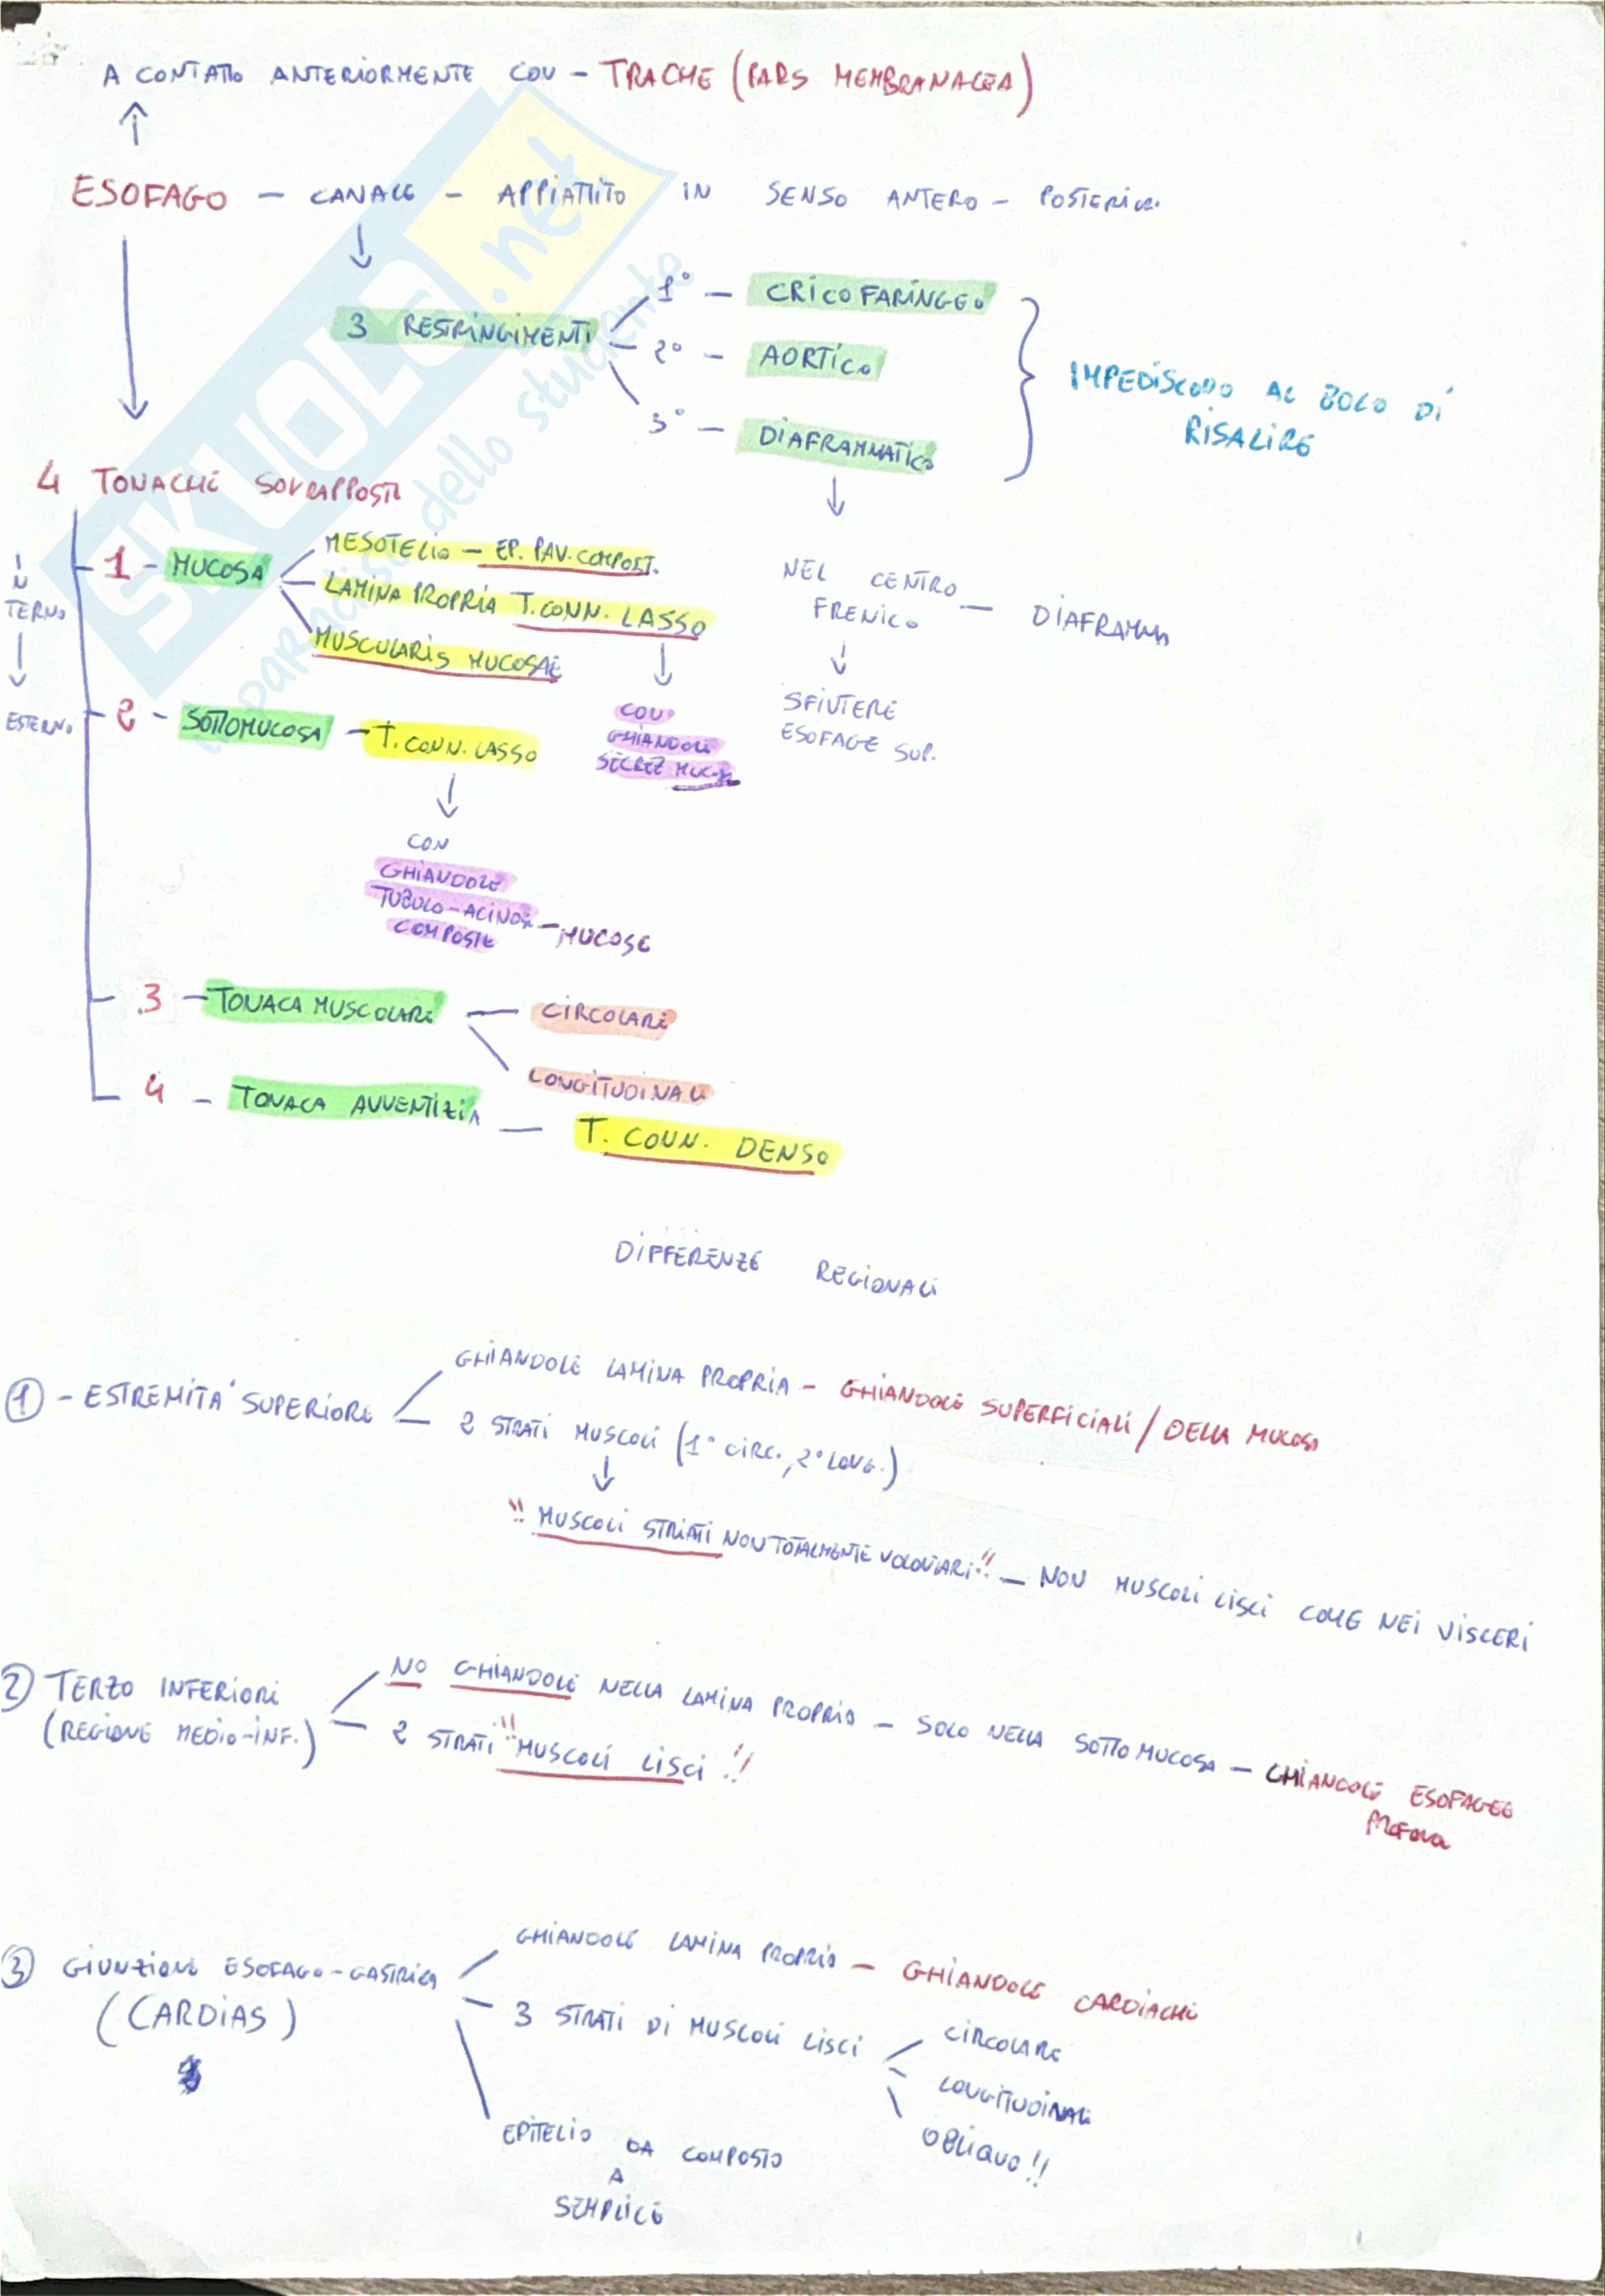 A CONTATTO ANTERIORMENTE CON - TRACHE (PARS MEMBRANACEA)
ESOFAGO - CANALE - APPIATTITO IN SENSO ANTERO - POSTERIOR.
3 RESTRINGIMENTI
1° - CRICOFARINGEO
2° - AORTICO
3° - DIAFRAMMATICO
IMPEDISCONO AL BOLO DI
RISALIRE
4 TONACHE SOVRAPPOSTE
INTERNO
ESTERNO
1 - MUCOSA
MESOTELIO - EP. PAV. COMPOST.
LAMINA PROPRIA T. CONN. LASSO
MUSCULARIS MUCOSAE
CON
GHIANDOLE
SECREZ MUCOSE
NEL CENTRO
FRENICO - DIAFRAMMA
SFINTERE
ESOFAGE SUP.
2 - SOTTOMUCOSA - T. CONN. LASSO
CON
GHIANDOLE
TUBULO-ACINOSE
COMPOSTE - MUCOSE
3 - TONACA MUSCOLARE
CIRCOLARE
LONGITUDINALE
4 - TONACA AVVENTIZIA - T. CONN. DENSO
DIFFERENZE REGIONALI
1 - ESTREMITA' SUPERIORE
GHIANDOLE LAMINA PROPRIA - GHIANDOLE SUPERFICIALI / DELLA MUCOSA
2 STRATI MUSCOLI (1° CIRC., 2° LONG.)
!! MUSCOLI STRIATI NON TOTALMENTE VOLONTARI!! - NON MUSCOLI LISCI COME NEI VISCERI
2 TERZO INFERIORE
(REGIONE MEDIO-INF.)
NO GHIANDOLE NELLA LAMINA PROPRIA - SOLO NELLA SOTTOMUCOSA - GHIANDOLE ESOFAGEE
2 STRATI !! MUSCOLI LISCI !!
3 GIUNZIONE ESOFAGO-GASTRICA
(CARDIAS)
GHIANDOLE LAMINA PROPRIA - GHIANDOLE CARDIACHE
3 STRATI DI MUSCOLI LISCI
CIRCOLARE
LONGITUDINALE
OBLIQUO!!
EPITELIO DA COMPOSTO
A
SEMPLICE
SKUOLA.net
il paradiso dello studente